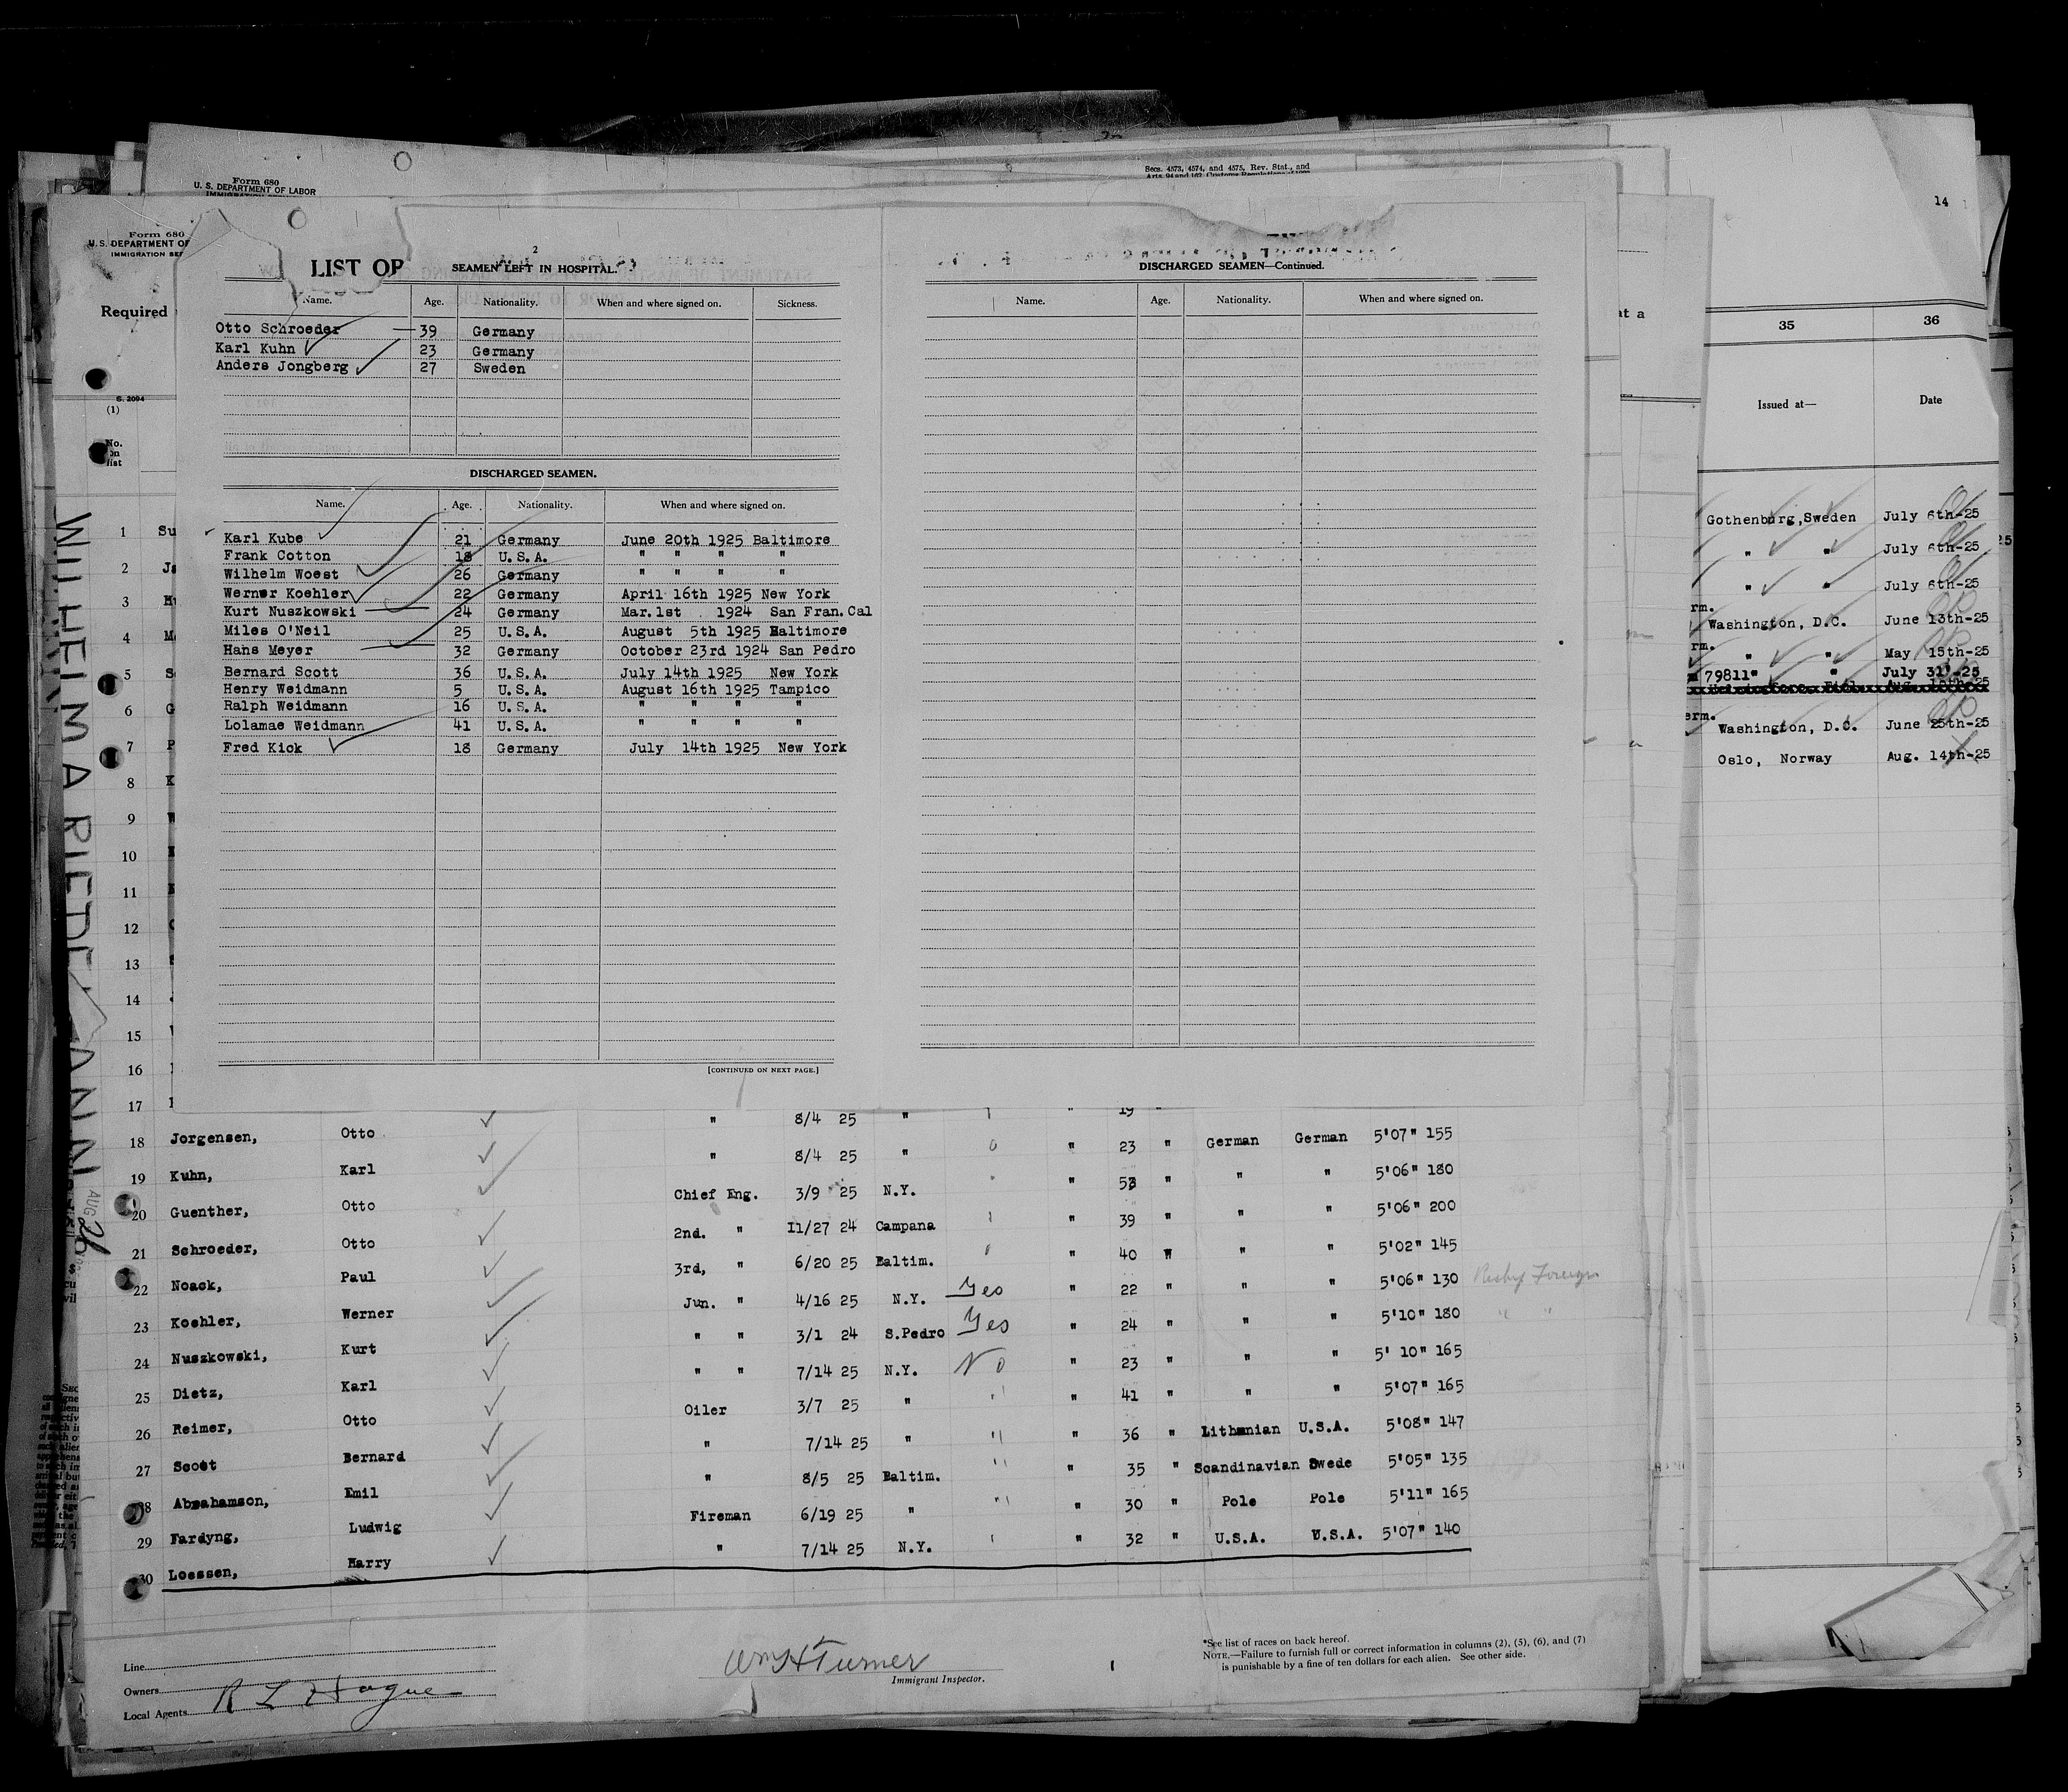 Form 680
U. S. DEPARTMENT OF LABOR
Secs. 4573, 4574, and 4575, Rev. Stat., and
14
Form 680
U. S. DEPARTMENT OF
IMMIGRATION SER
Required
S. 2094
(1)
No.
on
list
LIST OF
2
SEAMEN LEFT IN HOSPITAL.
Name. Age. Nationality. When and where signed on. Sickness.
Otto Schroeder 39 Germany
Karl Kuhn 23 Germany
Anders Jongberg 27 Sweden
DISCHARGED SEAMEN.
Name. Age. Nationality. When and where signed on.
Karl Kube 21 Germany June 20th 1925 Baltimore
Frank Cotton 18 U.S.A. " " " "
Wilhelm Woest 26 Germany " " " "
Werner Koehler 22 Germany April 16th 1925 New York
Kurt Nuszkowski 24 Germany Mar.1st 1924 San Fran.Cal
Miles O'Neil 25 U.S.A. August 5th 1925 Baltimore
Hans Meyer 32 Germany October 23rd 1924 San Pedro
Bernard Scott 36 U.S.A. July 14th 1925 New York
Henry Weidmann 5 U.S.A. August 16th 1925 Tampico
Ralph Weidmann 16 U.S.A. " " " "
Lolamae Weidmann 41 U.S.A. " " " "
Fred Kick 18 Germany July 14th 1925 New York
[CONTINUED ON NEXT PAGE.]
DISCHARGED SEAMEN—Continued.
Name. Age. Nationality. When and where signed on.
at a
35 36
Issued at— Date
Gothenburg,Sweden July 6th-25
" " July 6th-25
" " July 6th-25
rm.
Washington, D.C. June 13th-25
rm.
" " May 15th-25
79811" " July 31'-25
erm.
Washington, D.C. June 25th-25
Oslo, Norway Aug. 14th-25
WILHELM A RIEDEMANN
AUG 26
1 Su
2 Ja
3
4 M
5 S
6 G
7 P
8 K
9
10
11
12
13
14
15
16
17
" 8/4 25 " " 19 "
18 Jorgensen, Otto " 8/4 25 " " 23 " German German 5'07" 155
19 Kuhn, Karl Chief Eng. 3/9 25 N.Y. " 53 " " " 5'06" 180
20 Guenther, Otto 2nd. " 11/27 24 Campana " 39 " " " 5'06" 200
21 Schroeder, Otto 3rd, " 6/20 25 Baltim. " 40 " " " 5'02" 145
22 Noack, Paul Jun. " 4/16 25 N.Y. Yes " 22 " " " 5'06" 130
23 Koehler, Werner " " 3/1 24 S.Pedro Yes " 24 " " " 5'10" 180
24 Nuszkowski, Kurt " " 7/14 25 N.Y. No " 23 " " " 5' 10" 165
25 Dietz, Karl Oiler 3/7 25 " " 41 " " " 5'07" 165
26 Reimer, Otto " 7/14 25 " " 36 " Lithuanian U.S.A. 5'08" 147
27 Scott Bernard " 8/5 25 Baltim. " 35 " Scandinavian Swede 5'05" 135
28 Abrahamson, Emil Fireman 6/19 25 " " 30 " Pole Pole 5'11" 165
29 Fardyng, Ludwig " 7/14 25 N.Y. " 32 " U.S.A. U.S.A. 5'07" 140
30 Loessen, Harry
Line
Owners
Local Agents R L Hague
Wm H Turner
Immigrant Inspector.
*See list of races on back hereof.
NOTE.—Failure to furnish full or correct information in columns (2), (5), (6), and (7)
is punishable by a fine of ten dollars for each alien. See other side.